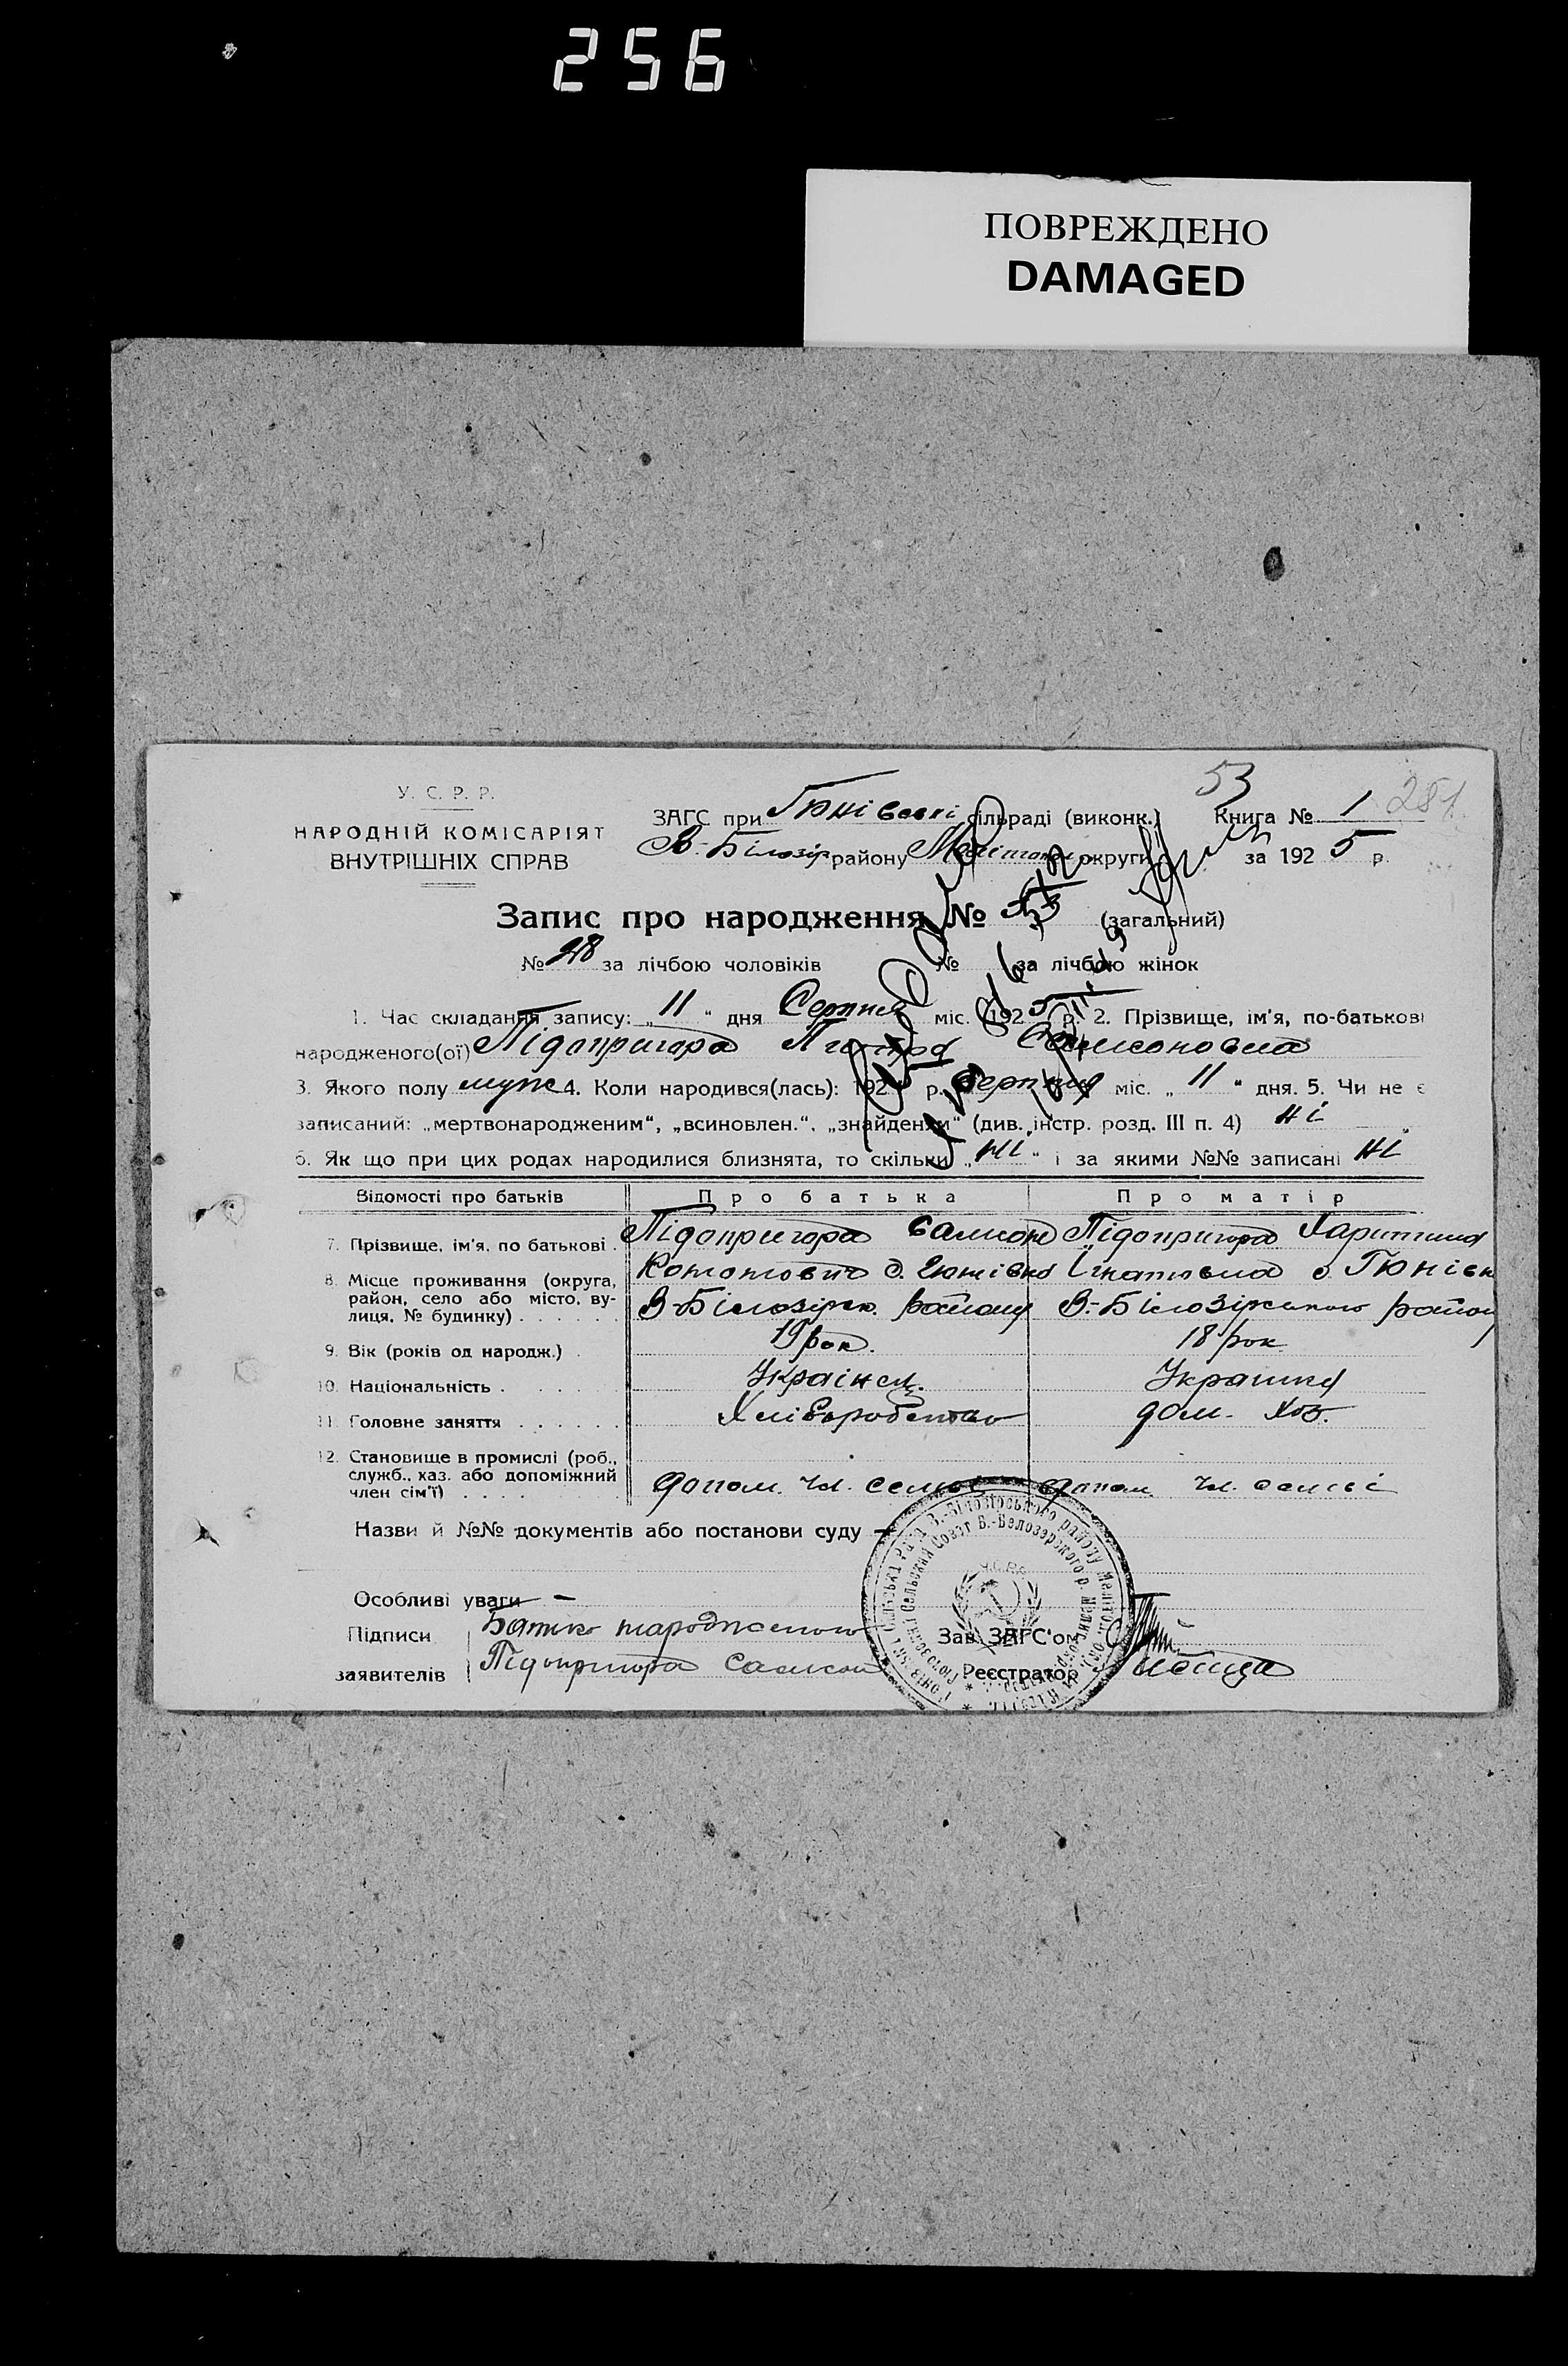 256
ПОВРЕЖДЕНО
DAMAGED
53
281
У. С. Р. Р.
НАРОДНІЙ КОМІСАРІЯТ
ВНУТРІШНІХ СПРАВ
ЗАГС при Гюнівській сільраді (виконк.) Книга № 1
В-Білозір району Мелітоп округи за 1925 р.
Запис про народження № 53 (загальний)
№ 28 за лічбою чоловіків № за лічбою жінок
1. Час складання запису: „11“ дня Серпня міс. 1925 р. 2. Прізвище, ім'я, по-батькові
народженого(ої) Підопригора Самсоновна
3. Якого полу муж 4. Коли народився(лась): 192 р. Серпня міс. „11“ дня. 5. Чи не є
записаний: „мертвонародженим“, „всиновлен.“, „знайденям“ (див. інстр. розд. III п. 4) ні
6. Як що при цих родах народилися близнята, то скільки „ні“ і за якими №№ записані ні
Відомості про батьків Про батька Про матір
7. Прізвище, ім'я, по батькові . Підопригора Самсон Підопригора Харитина
8. Місце проживання (округа, район, село або місто, вулиця, № будинку) . . . . . .
с. Гюнівка Ігнатовна с. Гюнівк
В-Білозірск. району В.-Білозірського району
9. Вік (років од народж.) . 19 рок. 18 рок.
10. Національність . . . . . Українец. Украинка
11. Головне заняття . . . . . Хліборобство дом. Хоз.
12. Становище в промислі (роб., служб., хаз. або допоміжний член сім'ї) . . . . допом. чл. семьі допом. чл. семьі
Назви й №№ документів або постанови суду —
Особливі уваги —
Підписи заявителів Батько народженого
Підопригора Самсон
Зав. ЗАГС'ом
Реєстратор